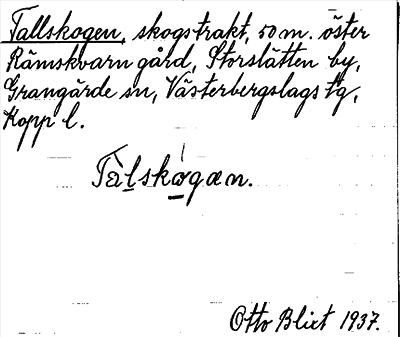 Tallskogen, skogstrakt, 50 m. öster
Rämskvarn gård, Storslätten by,
Grangärde sn, Västerbergslags tg,
Kopp l.
Tàlskogæn.
Otto Blixt 1937.